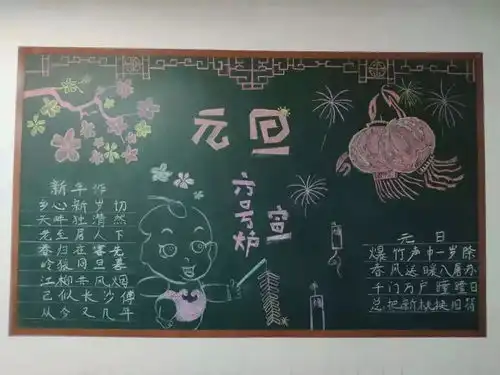 元旦
六号炉 宣
新年作
乡心新岁切
天畔独潸然
老至居人下
春归在客先
岭猿同旦暮
江柳共风烟
已似长沙傅
从今又几年
元日
爆竹声中一岁除
春风送暖入屠苏
千门万户瞳瞳日
总把新桃换旧符